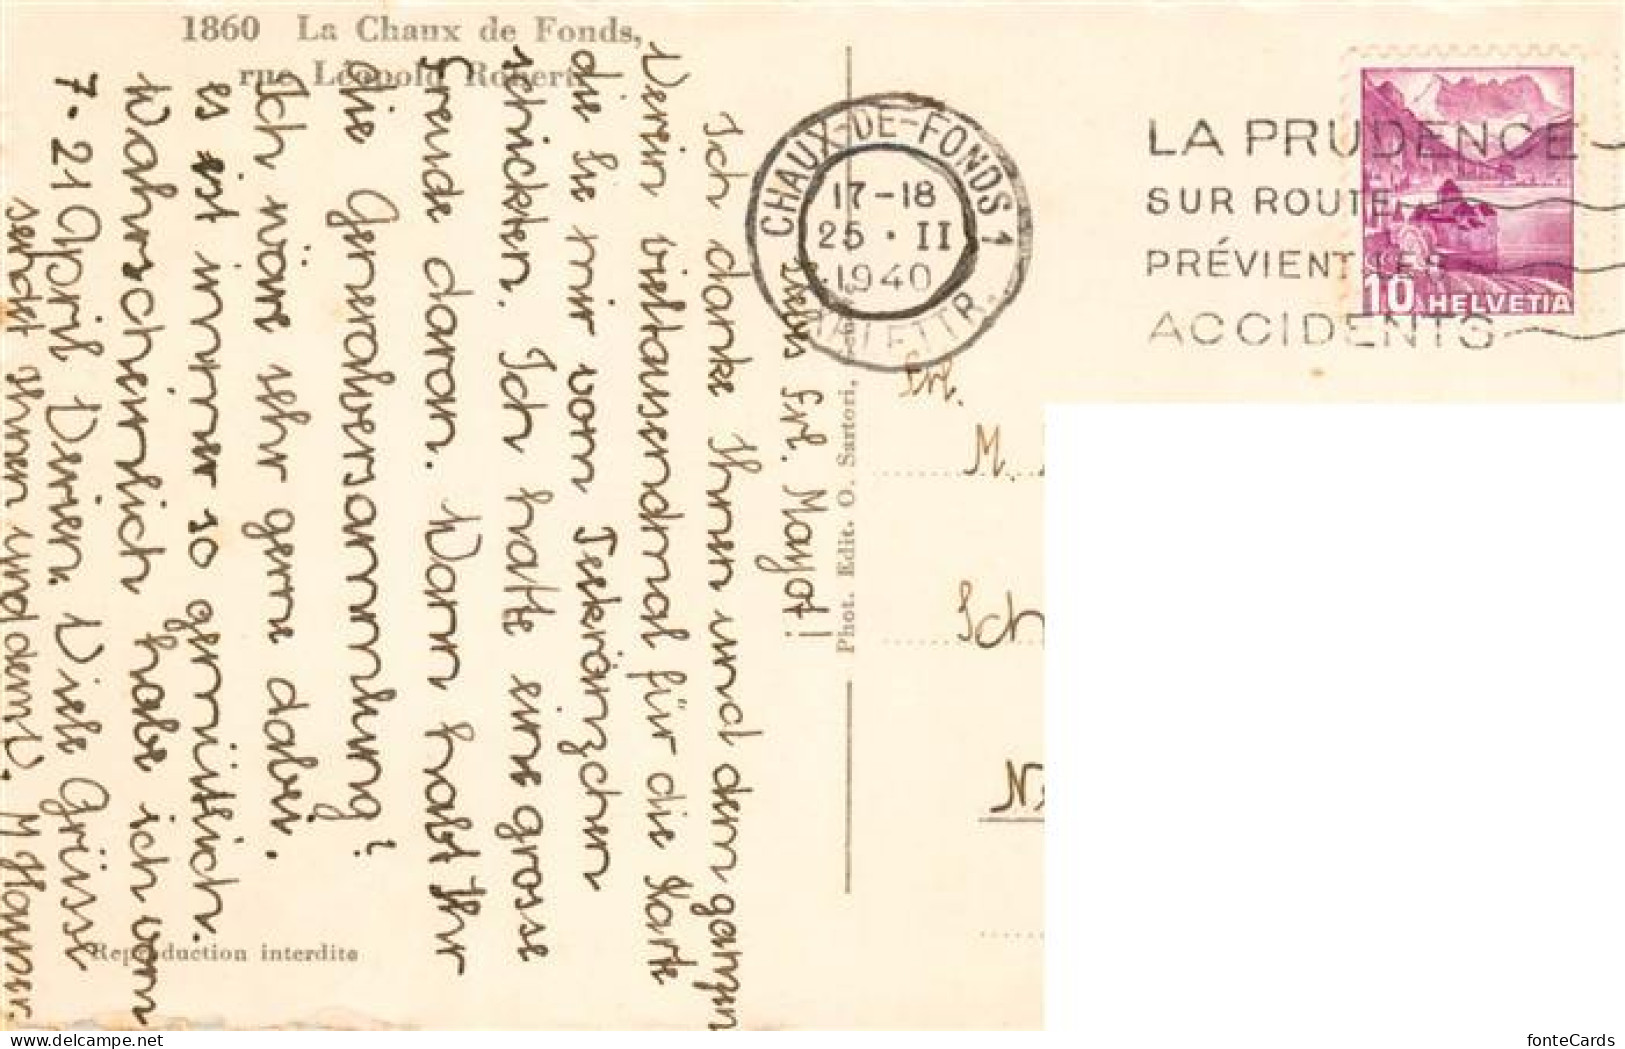 1860 La Chaux de Fonds,
rue Léopold Robert
CHAUX-DE-FONDS 1
17-18
25 · II
1940
LETTR.
LA PRUDENCE
SUR ROUTE
PRÉVIENT LES
ACCIDENTS
10 HELVETIA
Liebes Frl. Mayot!
Ich danke Ihnen und dem ganzen
Verein vieltausendmal für die Karte
die Sie mir vom Teekränzchen
schickten. Ich hatte eine grosse
Freude daran. Wann habt Ihr
die Generalversammlung?
Ich wäre sehr gerne dabei.
es ist immer so gemütlich.
Wahrscheinlich habe ich vom
7.-21 April Ferien. Viele Grüsse
sendet Ihnen und dem V. M Hauser.
Phot. Edit. O. Sartori,
Reproduction interdite
Frl.
M.
Sch